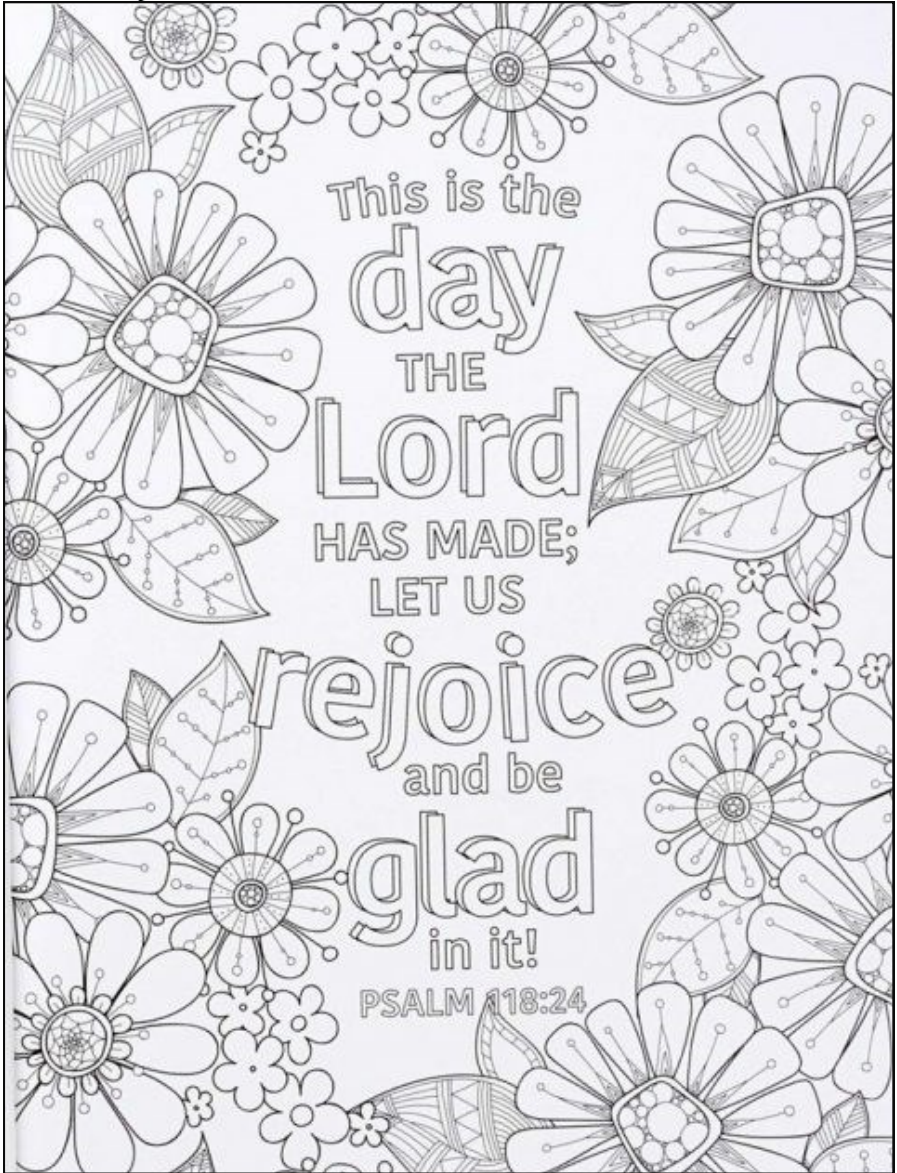 This is the
day
THE
Lord
HAS MADE;
LET US
rejoice
and be
glad
in it!
PSALM 118:24